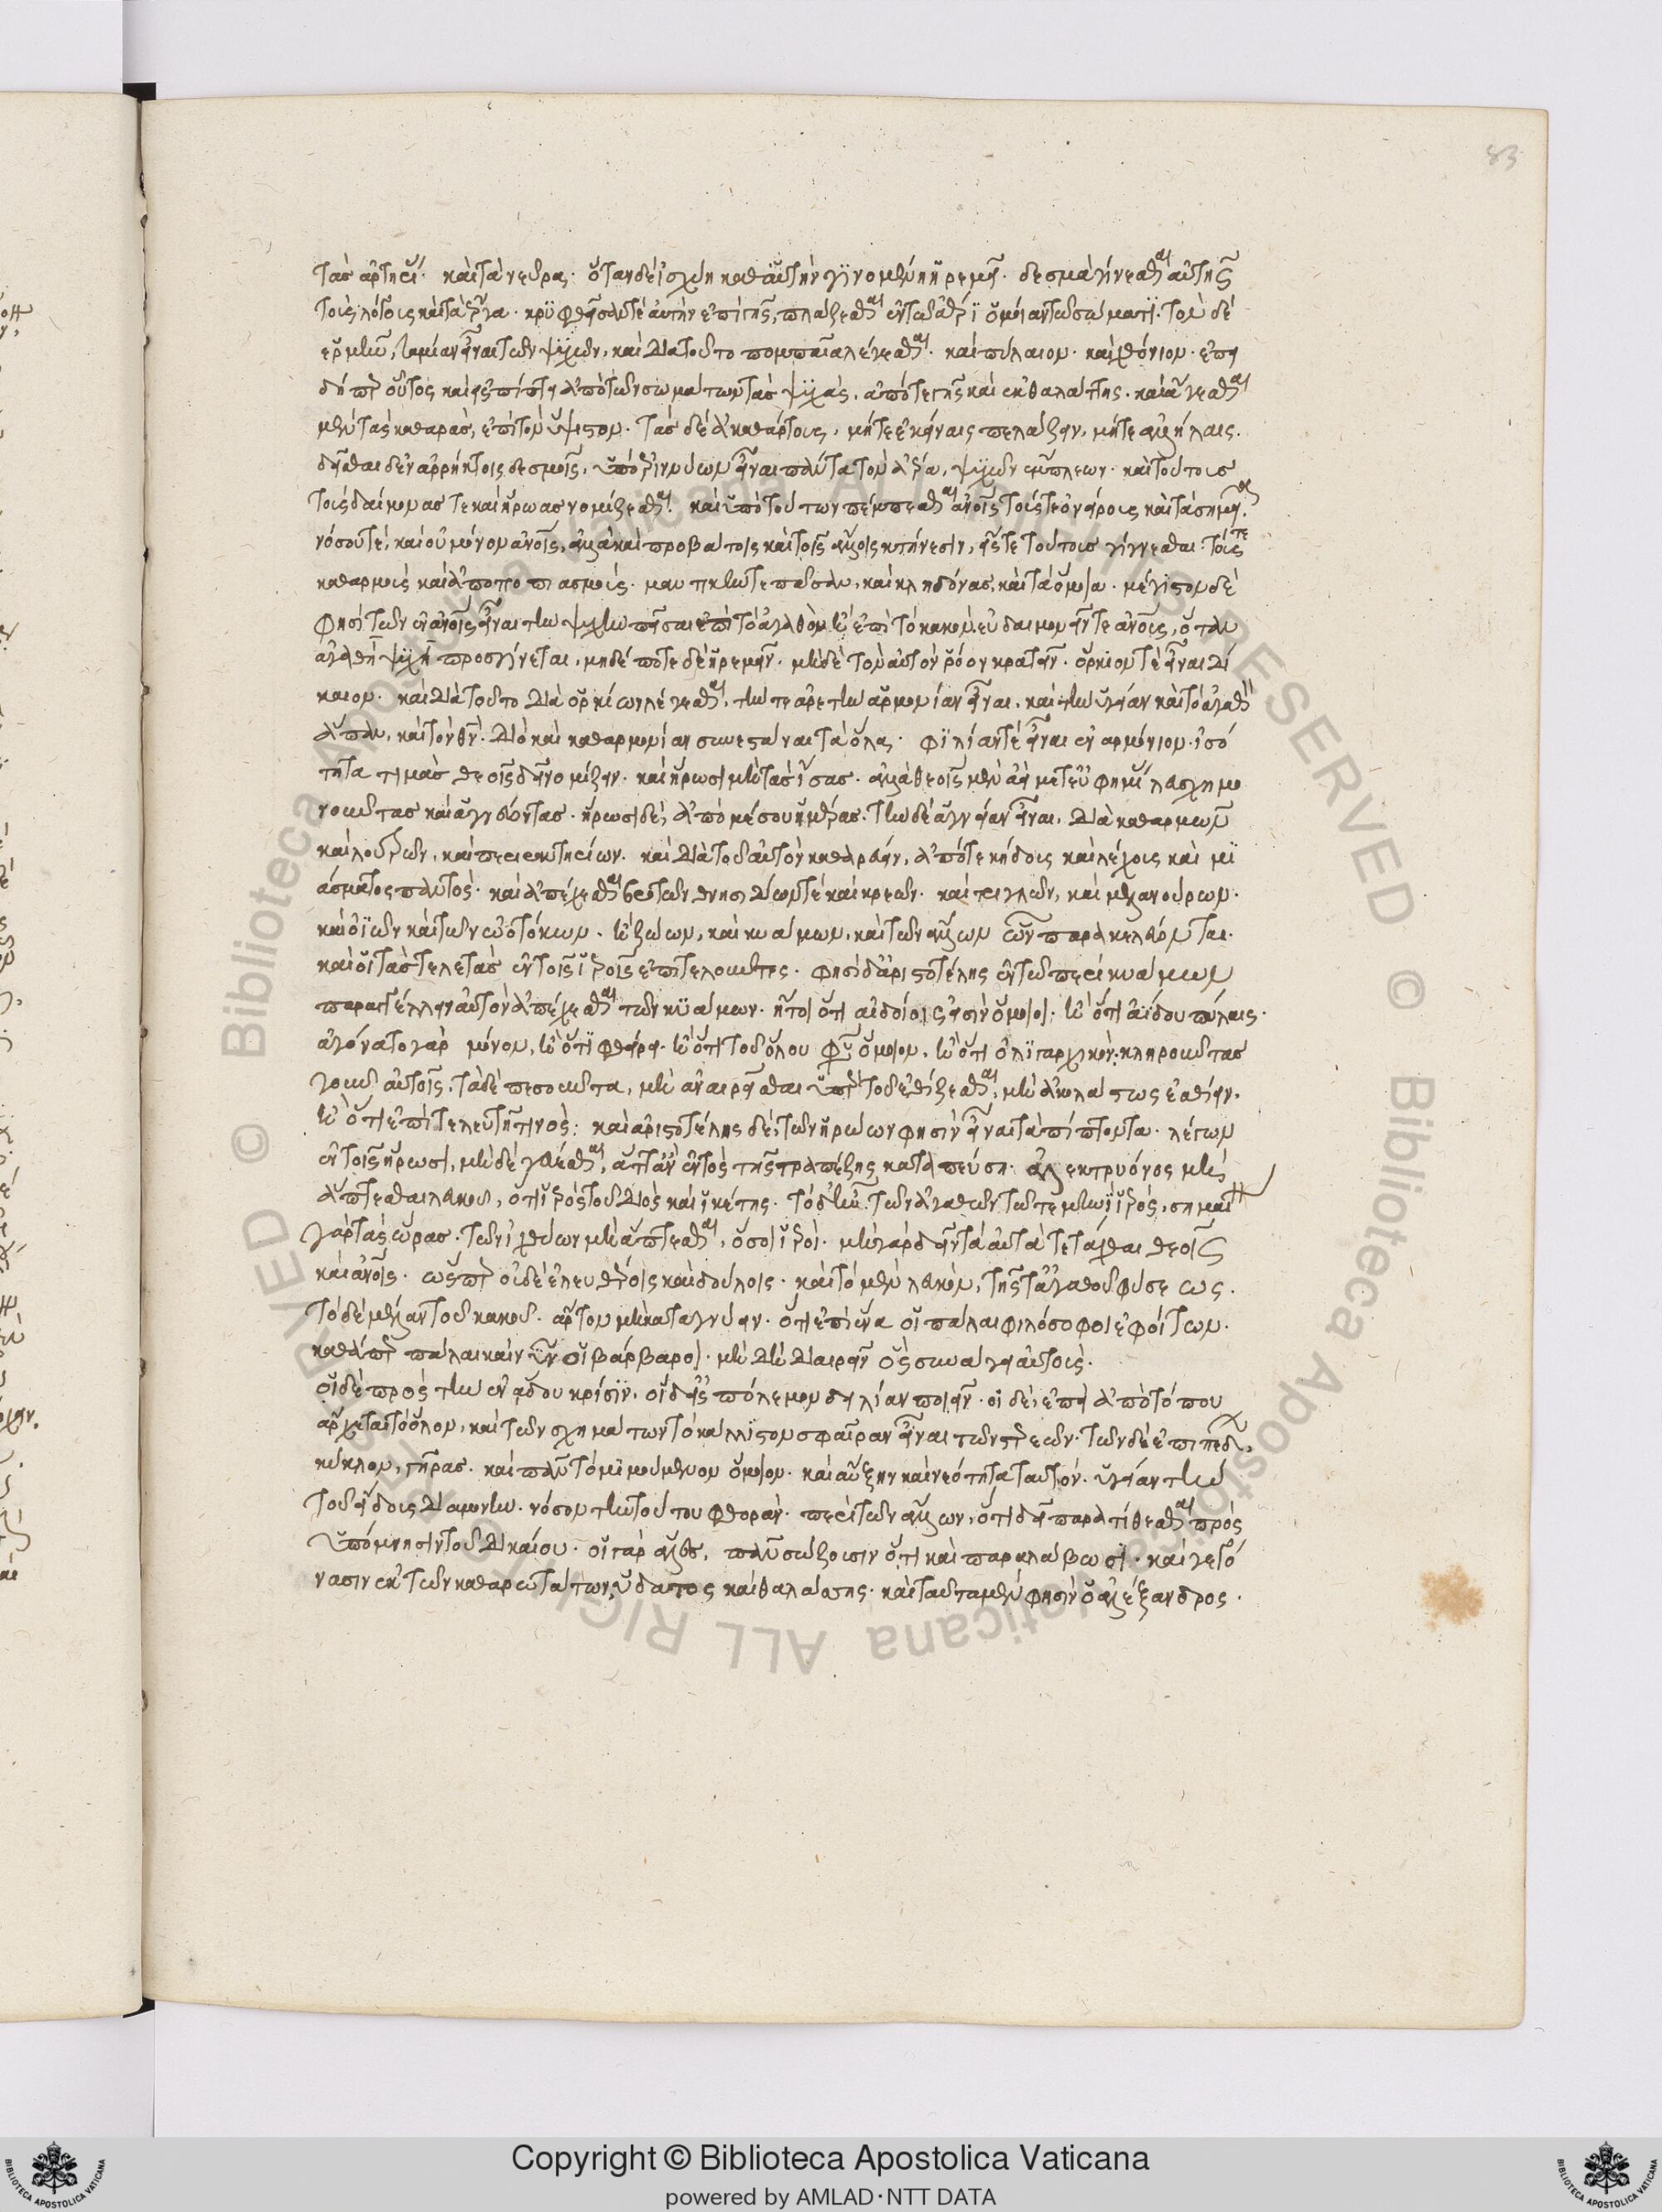 83
τὰς ἀρτηρί. καὶ τὰ νεῦρα. ὅταν δὲ ἰσχύη καθ' αὑτὴν γινομένη ἠρεμῆ. δεσμὰ γίνεσθαι αὐτῆς
τοὺς λόγους καὶ τὰ ἔργα. κριφθεῖσάν τε αὐτὴν ἐπὶ γῆς, πλάζεσθαι ἐν τῶ ἀέρι ὁμοίαν τῶ σώματι. τὸν δὲ
ἑρμῆν, ταμίαν εἶναι τῶν ψυχῶν, καὶ διὰ τοῦτο πομπαῖα λέγεσθαι. καὶ πύλαιον. καὶ χθόνιον. ἐπει
δήπερ οὗτος καὶ εἰσπέμπει ἀπὸ τῶν σωμάτων τὰς ψυχὰς. ἀπό τε γῆς καὶ ἐκ θαλάττης. καὶ ἄγεσθαι
μὲν τὰς καθαρὰς, ἐπὶ τὸν ὕψιστον. τὰς δὲ ἀκαθάρτους, μήτε ἐκείναις πελάζειν, μήτε ἀλλήλαις.
δεῖσθαι δ' ἐν ἀρρήκτοις δεσμοῖς, ὑπὸ ἐριννύων εἶναι πάντα τὸν ἀέρα, ψυχῶν ἔμπλεων. καὶ τούτους
τοὺς δαίμονας τε καὶ ἥρωας νομίζεσθαι. καὶ ὑπὸ τούτων πέμπεσθαι ἀνοις τούς τε ὀνείρους καὶ τὰ σημεῖα.
νόσου τέ, καὶ οὐ μόνον ἀνοις, ἀλλὰ καὶ προβάτοις καὶ τοῖς ἄλλοις κτήνεσιν, εἴς τε τούτους γίγνεσθαι τούς τε
καθαρμοὺς καὶ ἀποτροπιασμοὺς. μαντικήν τε πᾶσαν, καὶ κληδόνας, καὶ τὰ ὅμοια. μέγιστον δέ
φησὶ τῶν ἐν ἀνοις εἶναι τὴν ψυχὴν πεῖσαι ἐπὶ τὸ ἀγαθὸν ἢ ἐπὶ τὸ κακόν. εὐδαιμονεῖν τε ἀνους, ὅταν
ἀγαθὴ ψυχὴ προσγίνεται, μηδέποτε δὲ ἠρεμεῖν. μηδὲ τὸν αὐτὸν ῥόον κρατεῖν. ὅρκιον τὲ εἶναι δί
καιον. καὶ διὰ τοῦτο δία ὅρκιων λέγεσθαι, τήν τε ἀρετὴν ἁρμονίαν εἶναι. καὶ τὴν ὑγείαν καὶ τὸ ἀγαθὸν
ἅπαν, καὶ τὸν θν. διὸ καὶ καθ' ἁρμονίαν συνεστάναι τὰ ὅλα. φιλίαν τὲ εἶναι ἐναρμόνιον. ἰσό
τητα τιμὰς θεοῖς δεῖ νομίζειν. καὶ ἥρωσι μὴ τὰς ἴσας. ἀλλὰ θεοῖς μὲν ἀεὶ μετ' εὐφημί λασχημο
νοῦντας καὶ ἁγνεύοντας. ἥρωσι δὲ, ἀπὸ μέσου ἡμέρας. τὴν δὲ ἁγνείαν εἶναι. διὰ καθαρμῶν
καὶ λουτρῶν, καὶ περιρραντηρίων. καὶ διὰ τοῦ αὐτὸν καθαρεύειν, ἀπό τε κήδους καὶ λέχους καὶ μι
άσματος παντὸς. καὶ ἀπέχεσθαι βρωτῶν θνησιδίων τὲ καὶ κρεῶν. καὶ τριγλῶν, καὶ μελανούρων.
καὶ ὠῶν καὶ τῶν ὠοτόκων. ἢ ζώων, καὶ κυάμων, καὶ τῶν ἄλλων ὧν παρακελεύονται
καὶ οἱ τὰς τελετὰς ἐν τοῖς ἱεροῖς ἐπιτελοῦντες. φησὶ δ' ἀριστοτέλης ἐν τῶ περὶ κυάμων
παραγγέλλειν αὐτὸν ἀπέχεσθαι τῶν κυάμων. ἤτοι ὅτι αἰδοίοις εἰσὶν ὅμοιοι. ἢ ὅτι ἀΐδου πύλαις.
ἀγόνατο γὰρ μόνον, ἢ ὅτι φθείρει. ἢ ὅτι τοῦ ὅλου φύσει ὅμοιον. ἢ ὅτι ὀλιγαρχικὸν. κληροῦνται
γοῦν αὐτοῖς. τὰ δὲ πεσοῦντα, μὴ ἀναιρεῖσθαι ὑπὲρ τοῦ ἐθίζεσθαι, μὴ ἀκολάστως ἐσθίειν.
ἢ ὅτι ἐπὶ τελευτῆ τινὸς. καὶ ἀριστοτέλης δὲ, τῶν ἡρώων φησὶν εἶναι τὰ πίπτοντα. λέγων
ἐν τοῖς ἥρωσι, μὴ δὲ γεύεσθαι, ἅττ' ἂν ἐντὸς τῆς τραπέζης καταπέση. ἀλεκτρυόνος μὴ
ἅπτεσθαι λευκοῦ, ὅτι ἱερὸς τοῦ διὸς καὶ ἱκέτης. τὸ δ' ἦν τῶν ἀγαθῶν τῶ τε μηνὶ ἱερός, σημαίνει
γὰρ τὰς ὥρας. τῶν ἰχθύων μὴ ἅπτεσθαι, ὅσοι ἱεροὶ. μὴ γὰρ δεῖν τὰ αὐτὰ τετάχθαι θεοῖς
καὶ ἀνοις. ὥσπερ οὐδὲ ἐλευθέροις καὶ δούλοις. καὶ τὸ μὲν λευκὸν, τῆς τἀγαθοῦ φύσεως.
τὸ δὲ μέλαν τοῦ κακοῦ. ἄρτον μὴ καταγνύειν. ὅτι ἐπὶ ἕνα οἱ πάλαι φιλόσοφοι ἐφοίτων.
καθάπερ πάλαι καὶ νῦν οἱ βάρβαροι. μὴ δὴ διαιρεῖν ὃς συνάγει αὐτοὺς.
οἱ δὲ πρὸς τὴν ἐν ἅδου κρίσιν. οἱ δ' εἰς πόλεμον δειλίαν ποιεῖν. οἱ δὲ, ἐπεὶ ἀπὸ τόπου
ἄρχεται τὸ ὅλον, καὶ τῶν σχημάτων τὸ κάλλιστον σφαῖραν εἶναι τῶν στερεῶν. τῶν δὲ ἐπιπέδων,
κύκλον, γῆρας. καὶ πᾶν τὸ μιμούμενον ὅμοιον. καὶ αὔξην καὶ νεότητα ταυτόν. ὑγείαν τὴν
τοῦ εἴδους διαμονὴν. νόσον τὴν τούτου φθορὰν. περὶ τῶν ἁλῶν, ὅτι δεῖ παρατίθεσθαι πρὸς
ὑπόμνησιν τοῦ δικαίου. οἱ γὰρ ἅλες, πᾶν σώζουσιν ὅτι καὶ παρκλάβωσι. καὶ γεγό
νασιν ἐκ τῶν καθαρωτάτων, ὕδατος καὶ θαλάσσης. καὶ ταῦτα μὲν φησὶν ὁ ἀλέξανδρος.
Copyright © Biblioteca Apostolica Vaticana
powered by AMLAD·NTT DATA